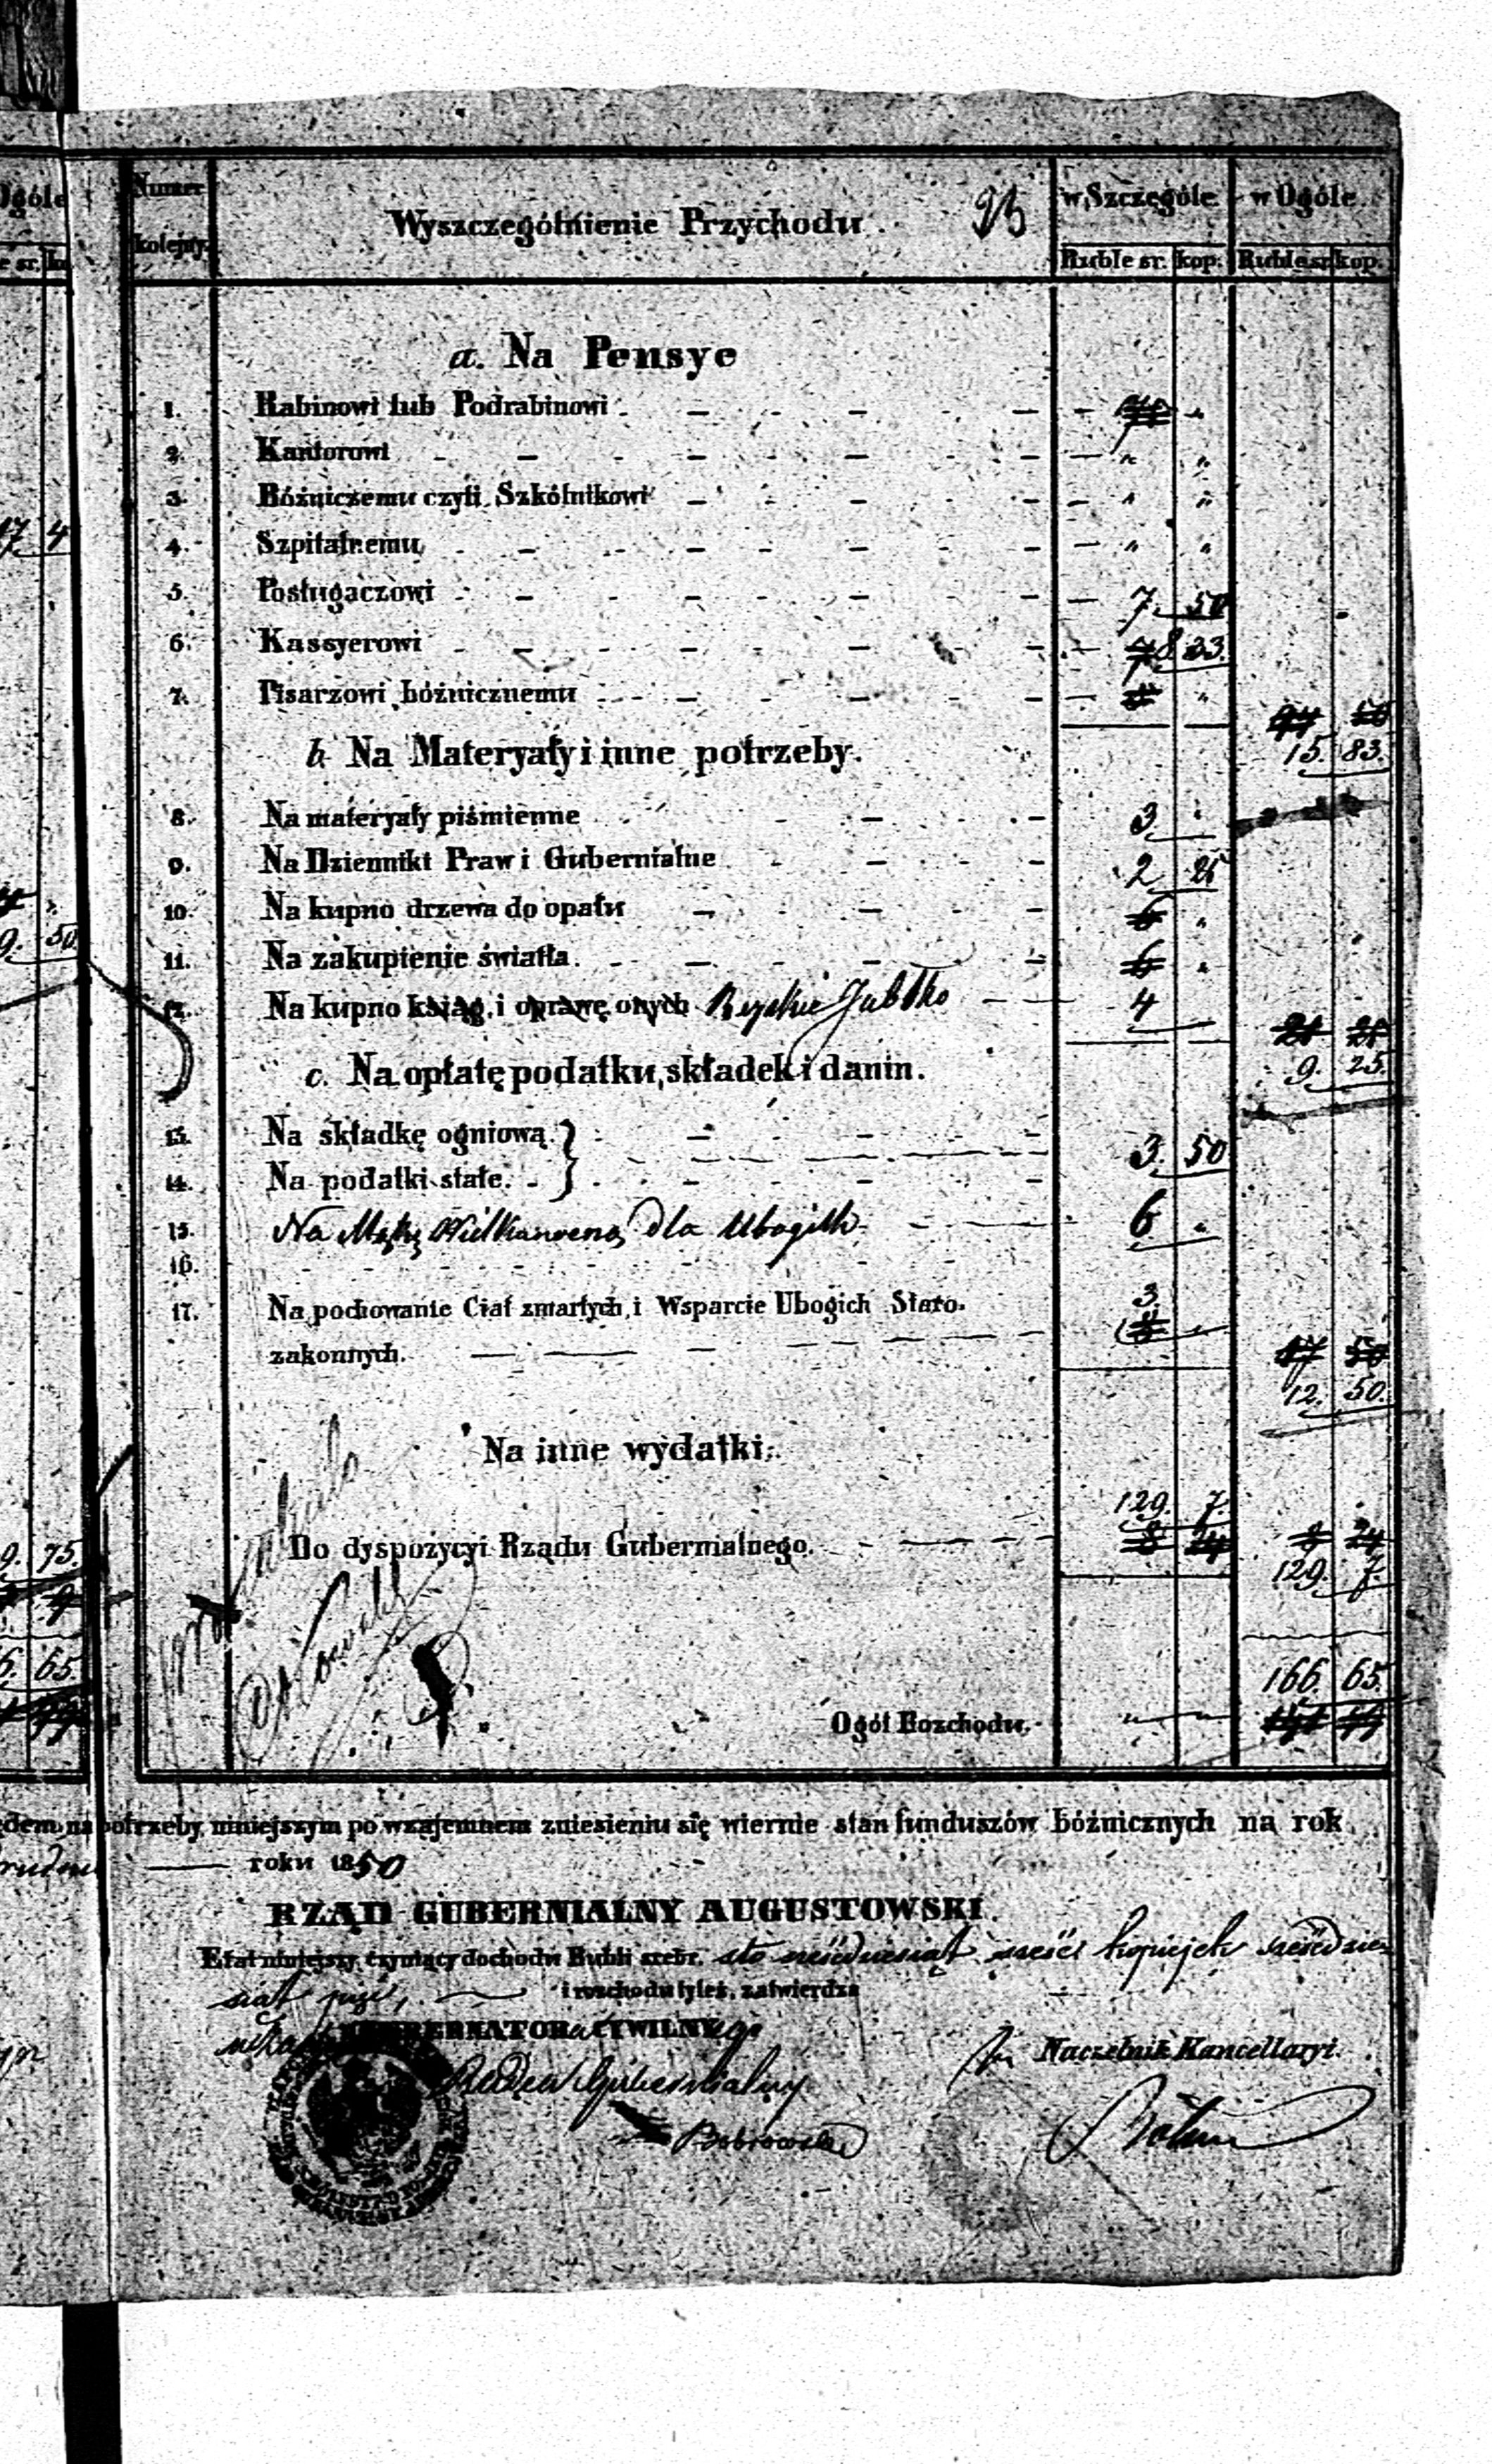 Ogóle
Numer
kolejny.
Wyszczególnienie Przychodu.
w Szczególe
w Ogóle
Ruble sr. kop. Ruble sr. kop.
a. Na Pensye
1. Rabinowi lub Podrabinowi
2. Kantorowi - " "
3. Bóżniczemu czyli Szkólnikowi - " "
4. Szpitalnemu - " "
5. Posługaczowi - 7 50
17 4
6. Kassyerowi - 8 33
7. Pisarzowi bóżnicznemu
15. 83.
b. Na Materyały i inne potrzeby.
8. Na materyały piśmienne - 3 "
9. Na Dzienniki Praw i Gubernialne - 2 25
10. Na kupno drzewa do opału - 6 "
9. 50
11. Na zakupienie światła. - 6 "
12. Na kupno ksiąg, i oprawę onych Rayskie Jabłko - 4
21 25
9. 25.
c. Na opłatę podatku, składek i danin.
13. Na składkę ogniową. }
3. 50
14. Na podatki stałe. }
15. Na Mąkę Wielkanocną dla Ubogich - 6 "
16.
17. Na pochowanie Ciał zmarłych, i Wsparcie Ubogich Staro- 3.
zakonnych.
17 50
12. 50.
Na inne wydatki.
129. 7.
Do dyspozycyi Rządu Gubernialnego. - 8 24 8 24
9. 75.
129. 7.
6. 65.
166. 65.
Ogół Rozchodu.
na potrzeby niniejszym po wzajemnem zniesieniu się wiernie stan funduszów bóżnicznych na rok
roku 1850
RZĄD GUBERNIALNY AUGUSTOWSKI.
Etat niniejszy, czyniący dochodu Rubli srebr. sto sześćdziesiąt sześć kopiejek sześćdzie-
siąt pięć, i rozchodu tyleż, zatwierdza
GUBERNATORA CYWILNEgo
Naczelnik Kancellaryi.
Radca Gubernialny
Bobrowski